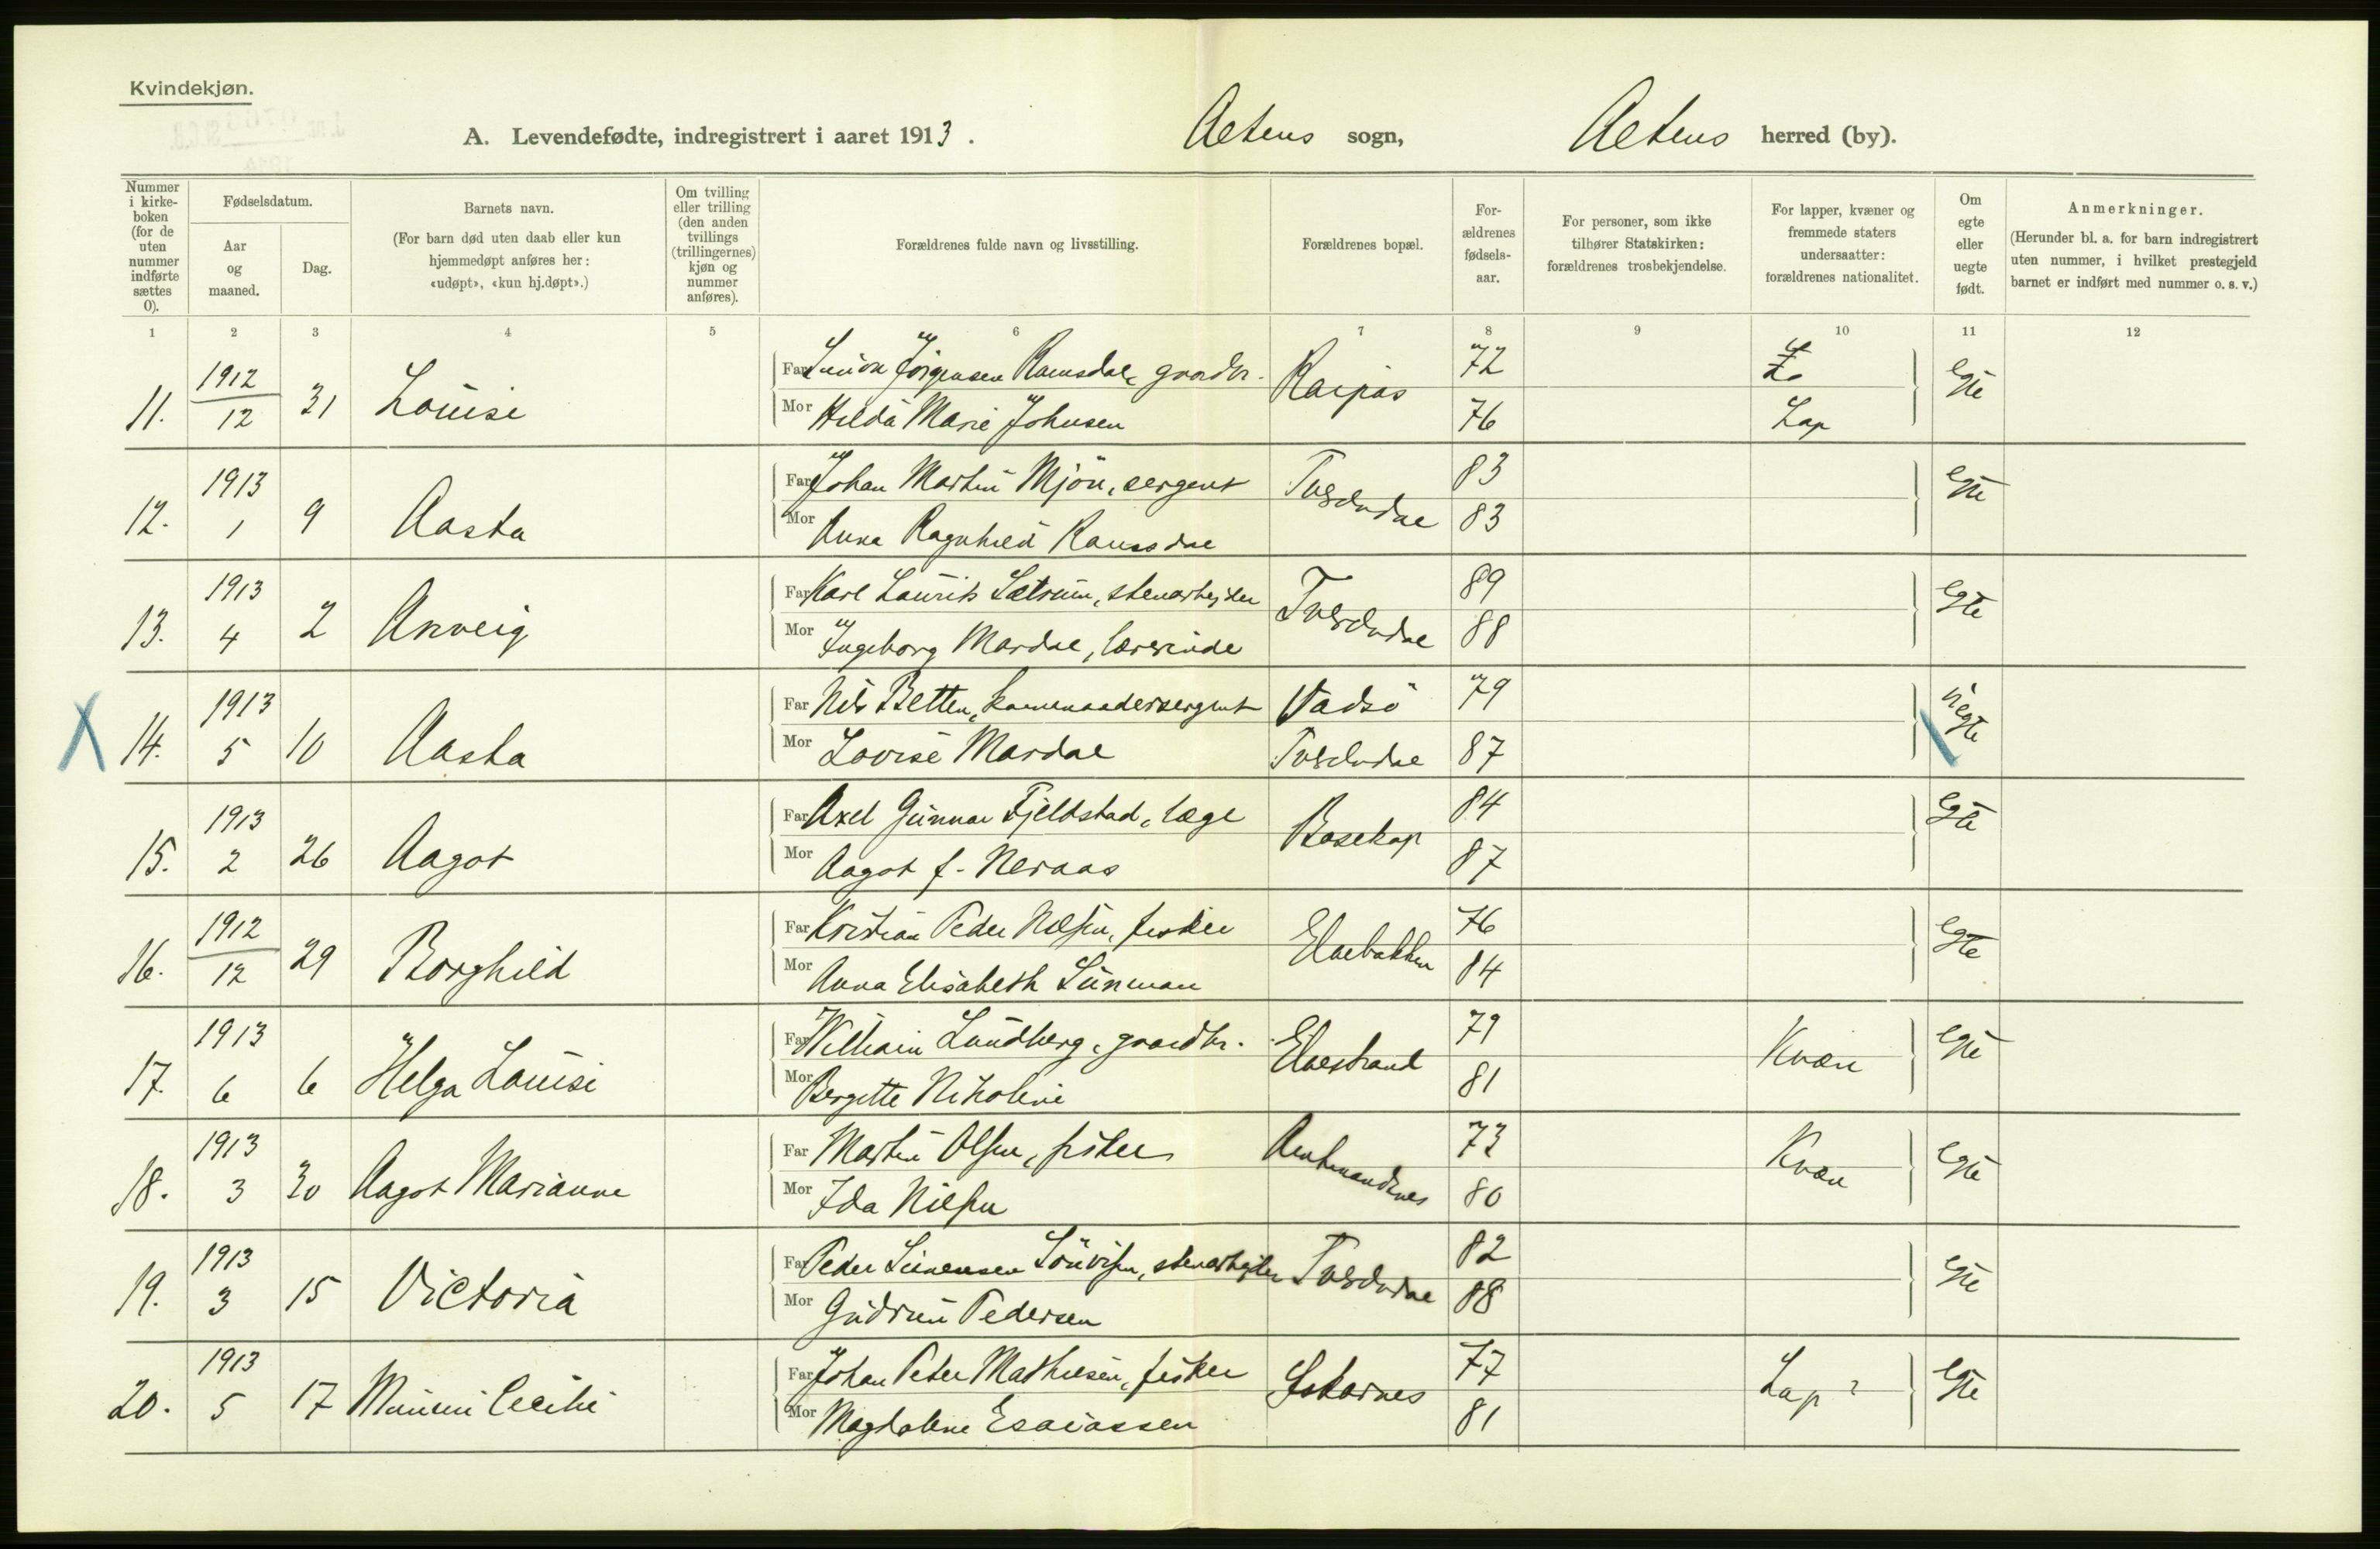 Kvindekjøn.
A. Levendefødte, indregistrert i aaret 1913. Altens sogn, Altens herred (by).
Nummer i kirke-boken (for de uten nummer indførte sættes 0).
Fødselsdatum.
Aar og maaned.
Dag.
Barnets navn.
(For barn død uten daab eller kun hjemmedøpt anføres her: «udøpt», «kun hj.døpt».)
Om tvilling eller trilling (den anden tvillings (trillingernes) kjøn og nummer anføres).
Forældrenes fulde navn og livsstilling.
Forældrenes bopæl.
For-ældrenes fødsels-aar.
For personer, som ikke tilhører Statskirken: forældrenes trosbekjendelse.
For lapper, kvæner og fremmede staters undersaatter: forældrenes nationalitet.
Om egte eller uegte født.
Anmerkninger.
(Herunder bl. a. for barn indregistrert uten nummer, i hvilket prestegjeld barnet er indført med nummer o. s. v.)
1 2 3 4 5 6 7 8 9 10 11 12
11. 1912 12 31 Louise
Far Simon Jørgensen Ramsdal, gaardbr. Raipas 72 egte
Mor Hilda Marie Johnsen 76 Lap
12. 1913 1 9 Aasta
Far Johan Martin Mjön, sergent Tverelvdal 83 egte
Mor Anna Ragnhild 83
13. 1913 4 2 Anveig
Far Karl Laurits Sætrum, stenarbejder Tverelvdal 89 egte
Mor Ingeborg Mardal, lærerinde 88
X 14. 1913 5 10 Aasta
Far Nils Betten, kommandersergent Vadsö 79 uegte
Mor Lovise Mardal Tverelvdal 87
15. 1913 2 26 Aagot
Far Axel Gunnar Fjeldstad, læge Bosekop 84 egte
Mor Aagot f. Neraas 87
16. 1912 12 29 Borghild
Far Kristian Peder Nilsen, fisker Elvebakken 76 egte
Mor Anna Elisabeth Sunman 84
17. 1913 6 6 Helga Louise
Far William Lundberg, gaardbr. Elvestrand 79 Kvæn egte
Mor Bergitte Nikoline 81
18. 1913 3 30 Aagot Marianne
Far Martin Olsen, fisker Amtmandsnes 73 Kvæn egte
Mor Ida Nilsen 80
19. 1913 3 15 Victoria
Far Peder Simensen stenarbejder Tverelvdal 82 egte
Mor Gudrun Pedersen 88
20. 1913 5 17 Mimmi Cecilie
Far Johan Peter Mathisen, fisker Iskarnes 77 Lap? egte
Mor Magdalene Esaiassen 81